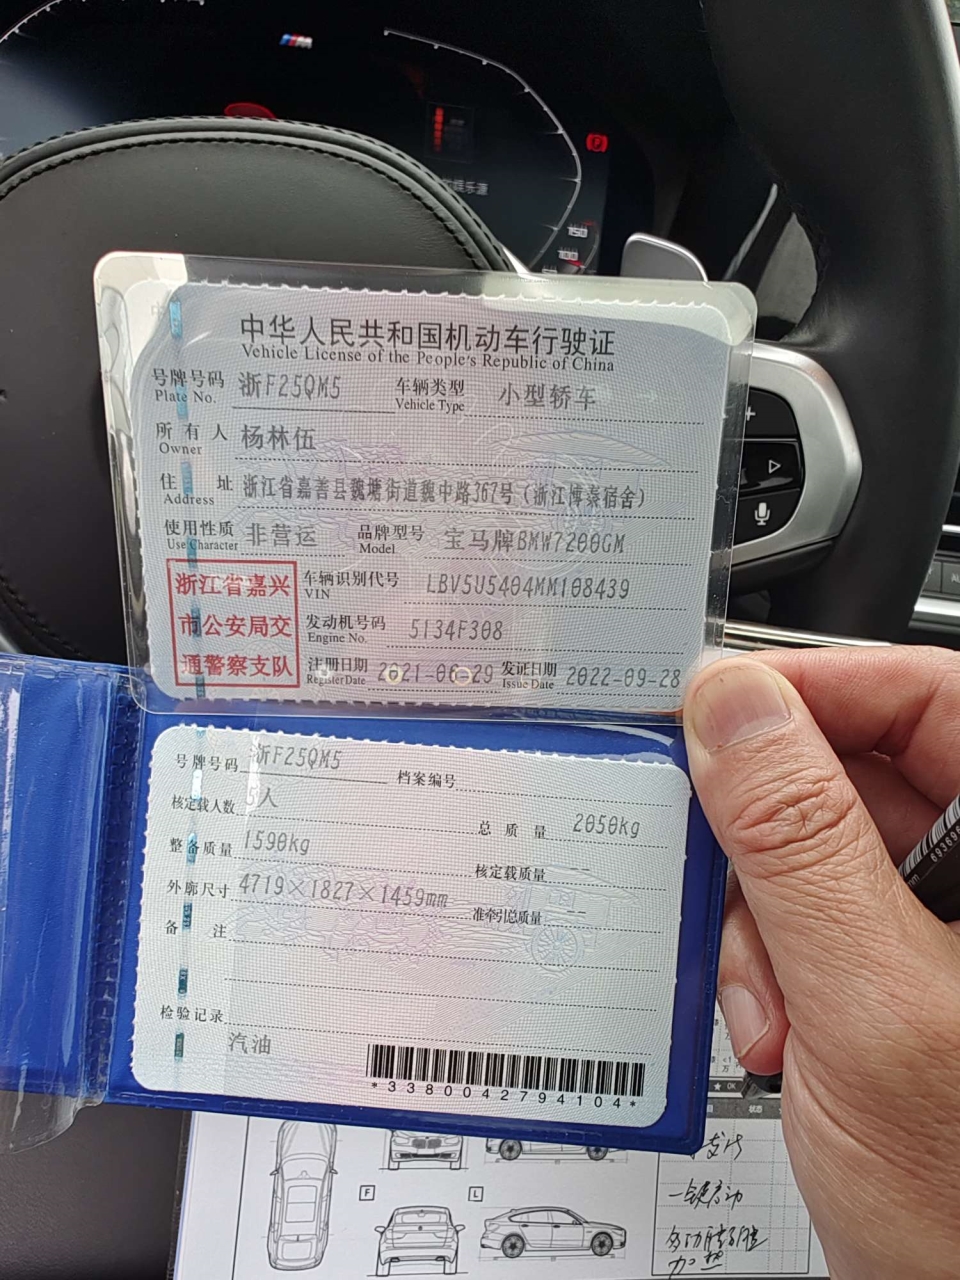 中华人民共和国机动车行驶证
Vehicle License of the People's Republic of China
号牌号码 浙F25QM5 车辆类型 小型轿车
Plate No. Vehicle Type
所有人 杨林伍
Owner
住址 浙江省嘉善县魏塘街道魏中路367号（浙江博莱宿舍）
Address
使用性质 非营运 品牌型号 宝马牌BMW7200GM
Use Character Model
浙江省嘉兴
市公安局交
通警察支队
车辆识别代号 LBV5U5404MM108439
VIN
发动机号码 5134F308
Engine No.
注册日期 2021-06-29 发证日期 2022-09-28
Register Date Issue Date
号牌号码 浙F25QM5 档案编号
核定载人数 5人 总质量 2050kg
整备质量 1590kg 核定载质量 --
外廓尺寸 4719×1827×1459mm 准牵引总质量 --
备注
检验记录
汽油
*3380042794104*
F
L
OK
一键启动
加热
150